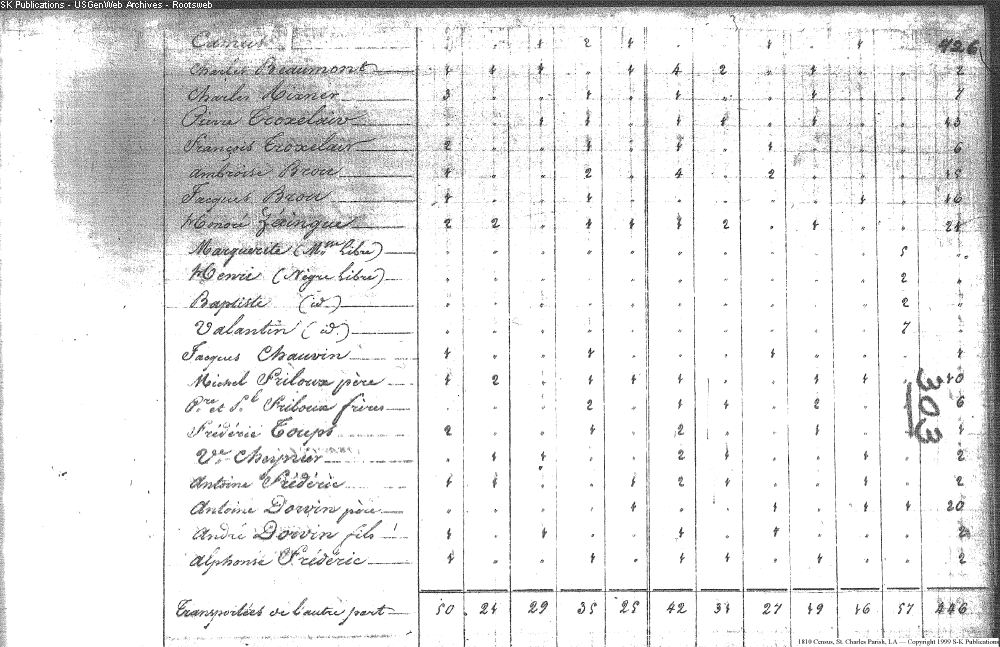 SK Publications - USGenWeb Archives - Rootsweb
Camus . . 1 2 1 . . 1 . 1 . 426
Charles Beaumont 1 1 1 . 1 4 2 . 1 . . 2
Charles 3 . . 1 . 1 . . 1 . . 7
Pierre Troxelair . . 1 1 . 1 1 . 1 . . 13
François Troxelair 2 . . 1 . 1 . 1 . . . 6
ambroise Brou 1 . . 2 . 4 . 2 . . . 15
Jacques Brou 1 . . 1 . . . . . 1 . 16
Honoré Zeringue 2 2 . 1 1 1 2 . 1 . . 21
Marguerite (M.sse Libre) . . . . . . . . . . 5 .
Henri (Nègre Libre) . . . . . . . . . . 2 .
Baptiste (id.) . . . . . . . . . . 2 .
Valantin (id.) . . . . . . . . . . 7 .
Jacques Chauvin 1 . . 1 . . . 1 . . . 1
Michel Friloux père 1 2 . 1 1 1 . . 1 1 . 10
P.re et Friloux frères . . . 2 . 1 1 . 2 . . 6
Frédéric Toups 2 . . 1 . 2 . . 1 . . 1
V.e . 1 1 . . 2 1 . . 1 . 2
Antoine Frédéric 1 1 . . 1 2 1 . . 1 . 2
Antoine Dorvin père . . . . 1 . . 1 . 1 1 20
André Dorvin fils 1 . 1 . . 1 . 1 . . . 2
Alphonse Frédéric 1 . . 1 . 1 1 . 1 . . 2
303
Transportées de l'autre part 50 21 29 35 25 42 31 27 19 16 57 446
1810 Census, St. Charles Parish, LA — Copyright 1999 S-K Publications